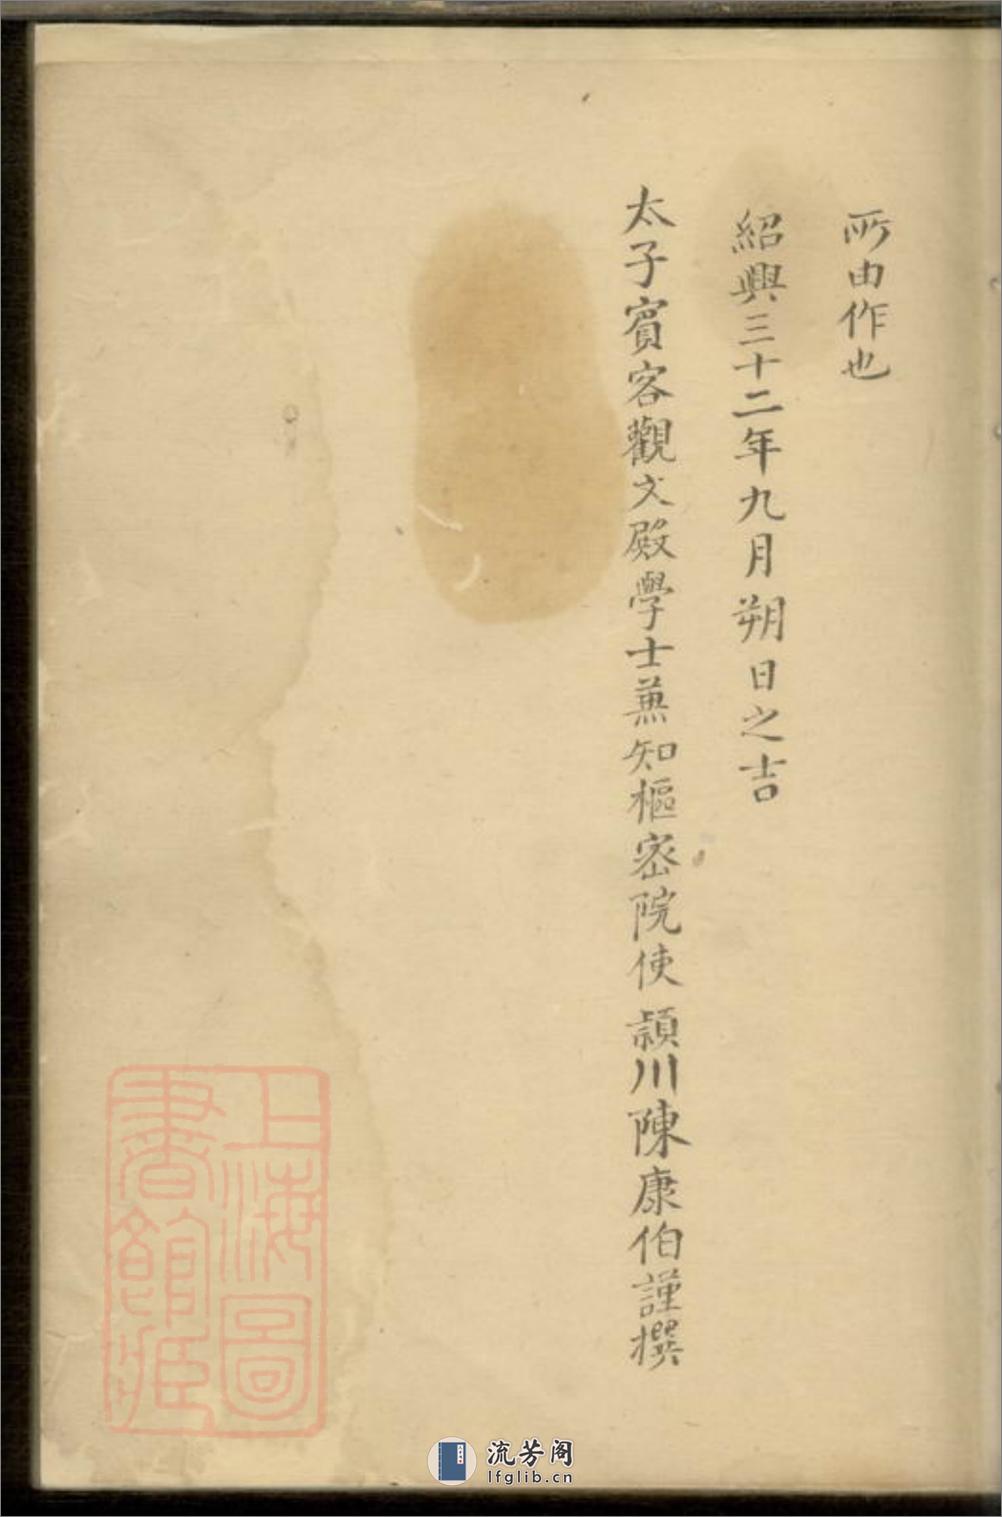 所由作也
紹興三十二年九月朔日之吉
太子賓客觀文殿學士兼知樞密院使 潁川陳康伯謹撰
上海圖
書館藏
流芳阁
lfglib.cn